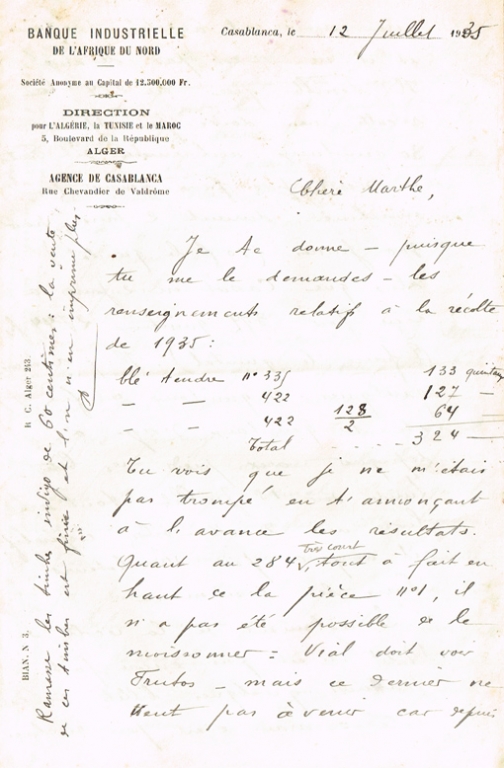 BANQUE INDUSTRIELLE
DE L'AFRIQUE DU NORD
Société Anonyme au Capital de 12.500.000 Fr.
DIRECTION
pour L'ALGÉRIE, la TUNISIE et le MAROC
5, Boulevard de la République
ALGER
AGENCE DE CASABLANCA
Rue Chevandier de Valdrôme
Casablanca, le 12 Juillet 1935
Chère Marthe,
Je te donne – puisque
tu me le demandes – les
renseignements relatifs à la récolte
de 1935 :
blé tendre n° 335 133 quintaux
— — 422 127 —
— — 422 128/2 64 —
Total .... 324 —
Tu vois que je ne m'étais
pas trompé en t'annonçant
à l'avance les résultats.
Quant au 284, très court tout à fait en
haut de la pièce n°1, il
n'a pas été possible de le
moissonner : Vial doit voir
Frutos – mais ce dernier ne
veut pas venir car depuis
Ramasse les timbres indigo de 60 centimes : la vente
de ces timbres est finie et l'on n'en imprime plus.
R. C. Alger 213.
BIAN. N 3.